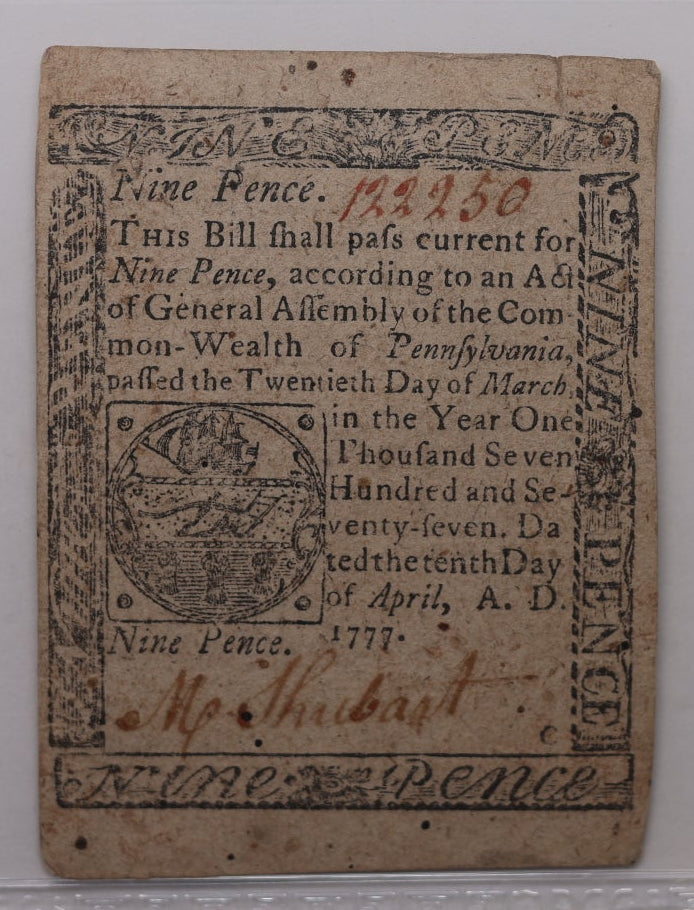 NINE PENCE
Nine Pence. 122250
THIS Bill ſhall paſs current for
Nine Pence, according to an Act
of General Aſſembly of the Com-
mon-Wealth of Pennſylvania,
paſſed the Twentieth Day of March,
in the Year One
Thouſand Seven
Hundred and Se-
venty-ſeven. Da
ted the tenth Day
of April, A. D.
Nine Pence. 1777.
Shubart
Nine Pence
NINE PENCE